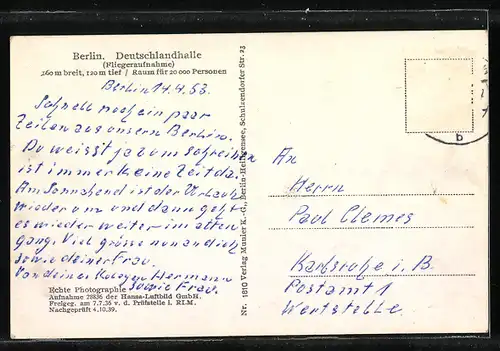 Berlin. Deutschlandhalle
(Fliegeraufnahme)
260 m breit, 120 m tief / Raum für 20 000 Personen
Berlin 14.4.53.
Schnell noch ein paar
Zeilen aus unsern Berlin.
Du weisst ja zum schreiben
ist immer keine Zeit da.
Am Sonnabend ist der Urlaub
wieder um und dann geht
es wieder weiter im alten
gang. Viel grüsse nun an dich
sowie deiner Frau.
Von deinen Kollegen Hermann
sowie Frau.
Echte Photographie
Aufnahme 28836 der Hansa-Luftbild GmbH.
Freigeg. am 7.7.36 v. d. Prüfstelle i. RLM.
Nachgeprüft 4.10.39.
Nr. 1810 Verlag Munler K.-G., Berlin-Heiligensee, Schulzendorfer Str. 23
b
An
Herrn
Paul Clemes
Karlsruhe i. B.
Postamt 1
Wertstelle.